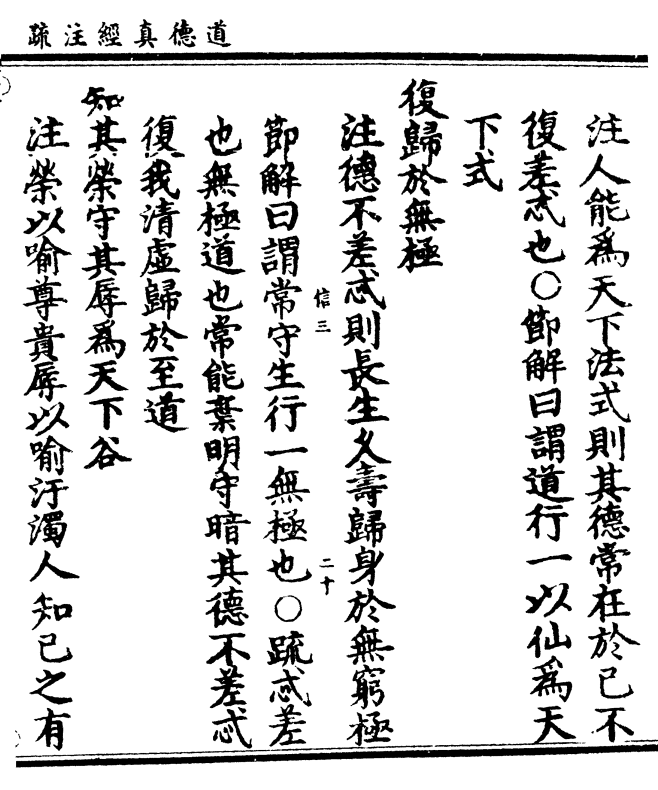 道德真經注疏
注人能爲天下法式則其德常在於已不
復差忒也○節解曰謂道行一以仙爲天
下式
復歸於無極
注德不差忒則長生久壽歸身於無窮極
信三
二十
節解曰謂常守生行一無極也○疏忒差
也無極道也常能棄明守暗其德不差忒
復我清虛歸於至道
知其榮守其辱爲天下谷
注榮以喻尊貴辱以喻汙濁人知已之有